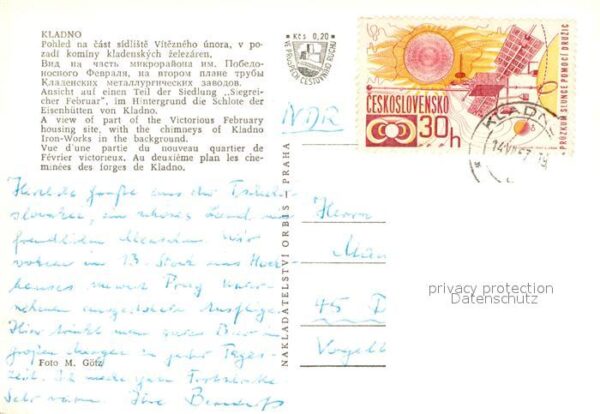 KLADNO
Pohled na část sídliště Vítězného února, v po-
zadí komíny kladenských železáren.
Вид на часть микрорайона им. Победо-
носного Февраля, на втором плане трубы
Кладенских металлургических заводов.
Ansicht auf einen Teil der Siedlung „Siegrei-
cher Februar", im Hintergrund die Schlote der
Eisenhütten von Kladno.
A view of part of the Victorious February
housing site, with the chimneys of Kladno
Iron-Works in the background.
Vue d'une partie du nouveau quartier de
Février victorieux. Au deuxième plan les che-
minées des forges de Kladno.
Herzliche Grüße aus der Tschecho-
slowakei, ein schönes Land mit
freundlichen Menschen. Wir
wohnen im 13. Stock
unweit Prag
ausgedehnte Ausflüge.
Hier trinkt man gutes Bier in
großen Mengen in jeder Tages-
zeit. Ich mache gute Fortschritte
Sehr warm. Ihre
Foto M. Götz
NAKLADATELSTVÍ ORBIS - PRAHA
Kčs 0,20
VE PROSPĚCH CESTOVNÍHO RUCHU
ČESKOSLOVENSKO
30h
PRŮZKUM SLUNCE POMOCÍ DRUŽIC
KLADNO
NDR
Herrn
45
privacy protection
Datenschutz